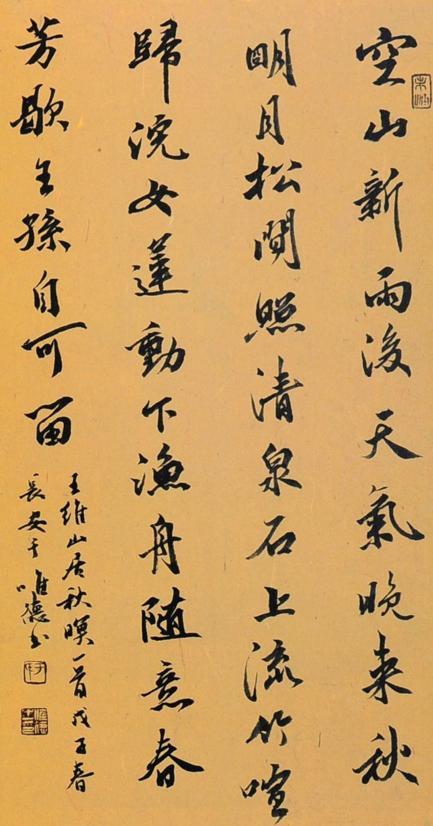 空山新雨後天氣晚来秋
明月松間照清泉石上流竹喧
歸浣女蓮動下漁舟随意春
芳歇王孫自可留
王維山居秋暝一首戊子春
長安于唯德书